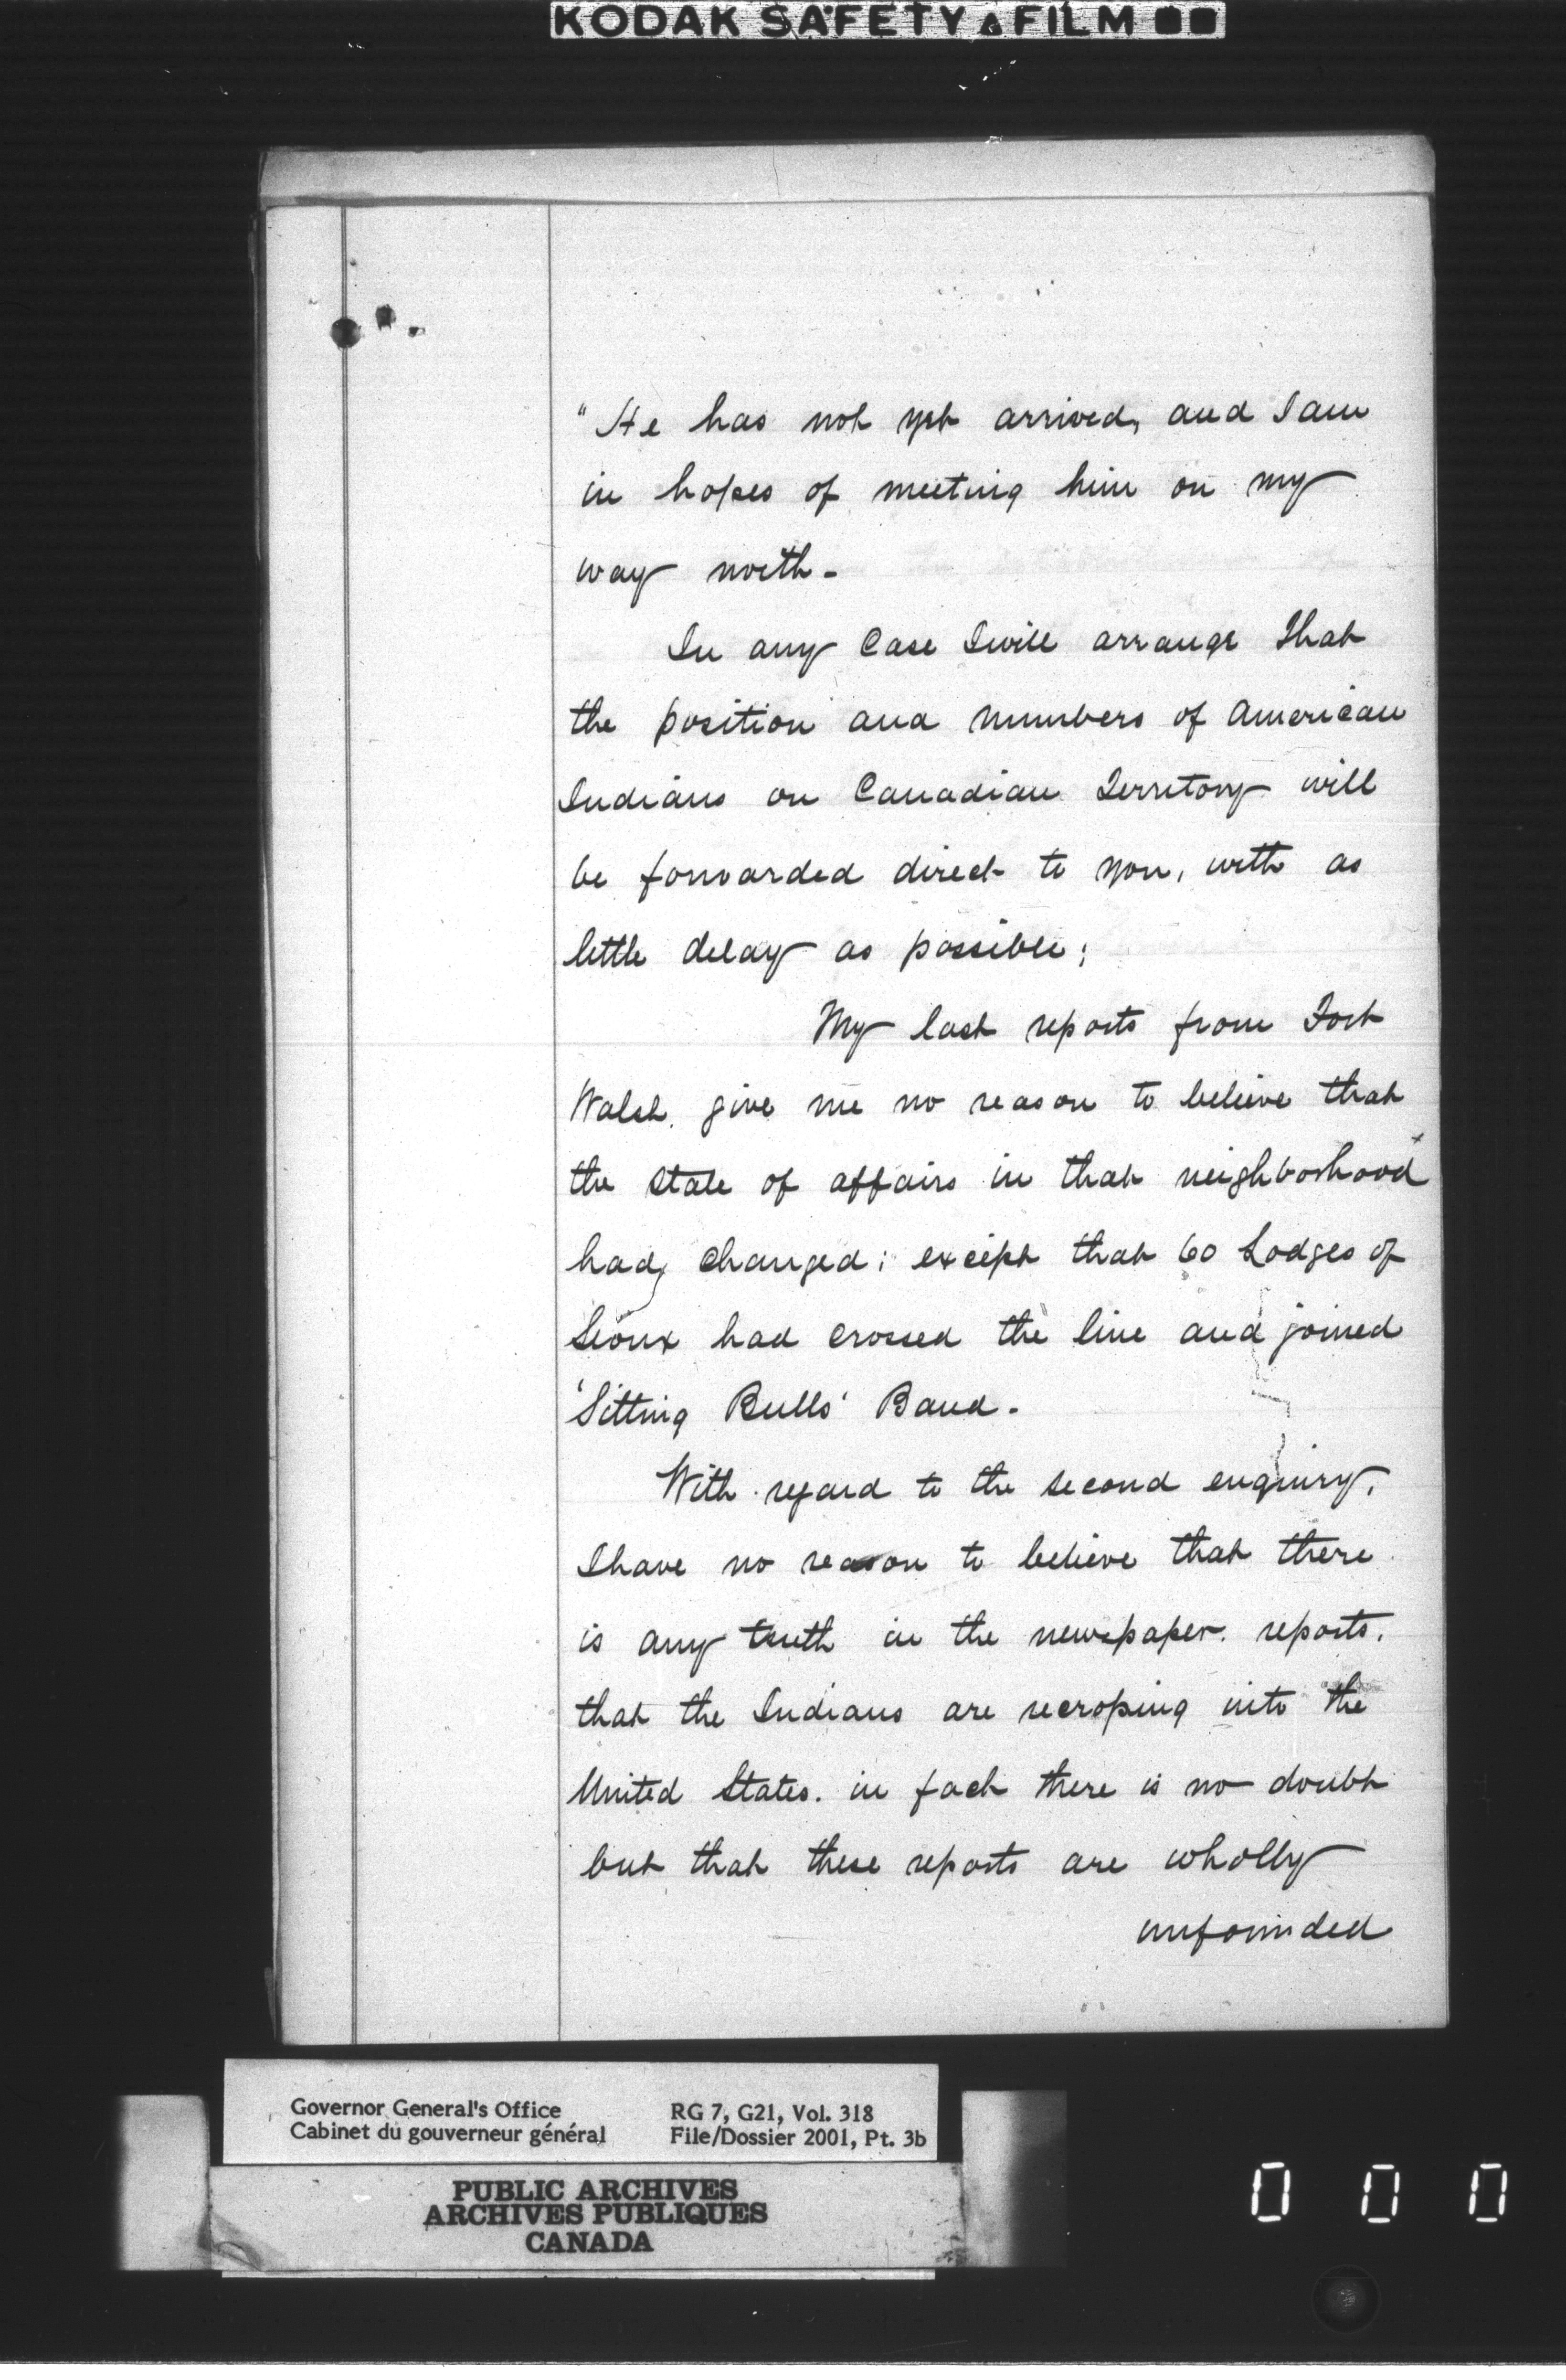 KODAK SAFETY FILM
" He has not yet arrived, and I am
in hopes of meeting him on my
way north -
In any Case I will arrange that
the position and numbers of American
Indians on Canadian Territory will
be forwarded direct to you, with as
little delay as possible;
My last reports from Fort
Walsh. give me no reason to believe that
the state of affairs in that neighborhood
had changed; except that 60 Lodges of
Sioux had crossed the line and joined
'Sitting Bulls' Band.
With regard to the second enquiry,
I have no reason to believe that there
is any truth in the newspaper reports,
that the Indians are recrossing into the
United States. in fact there is no doubt
but that these reports are wholly
unfounded
Governor General's Office RG 7, G21, Vol. 318
Cabinet du gouverneur général File/Dossier 2001, Pt. 3b
PUBLIC ARCHIVES
ARCHIVES PUBLIQUES
CANADA
0 0 0